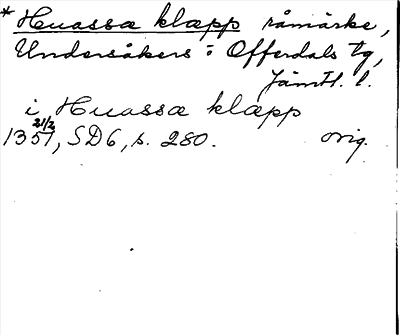 * Huassæ klæpp råmärke,
Undersåkers o Offerdals tg,
Jämtl. l.
i Huassæ klæpp
21/2
1351, SD6, s. 280. orig.